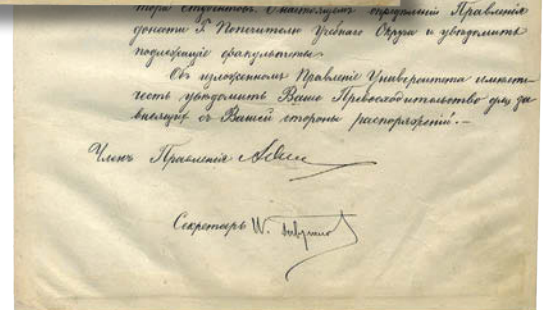 тора студентовъ. О настоящемъ опредѣленіи Правленія
донести Г. Попечителю Учебнаго Округа и увѣдомить
подлежащіе факультеты.
Объ изложенномъ Правленіе Университета имѣетъ
честь увѣдомить Ваше Превосходительство для за-
висящихъ съ Вашей стороны распоряженій. —
Членъ Правленія
Секретарь